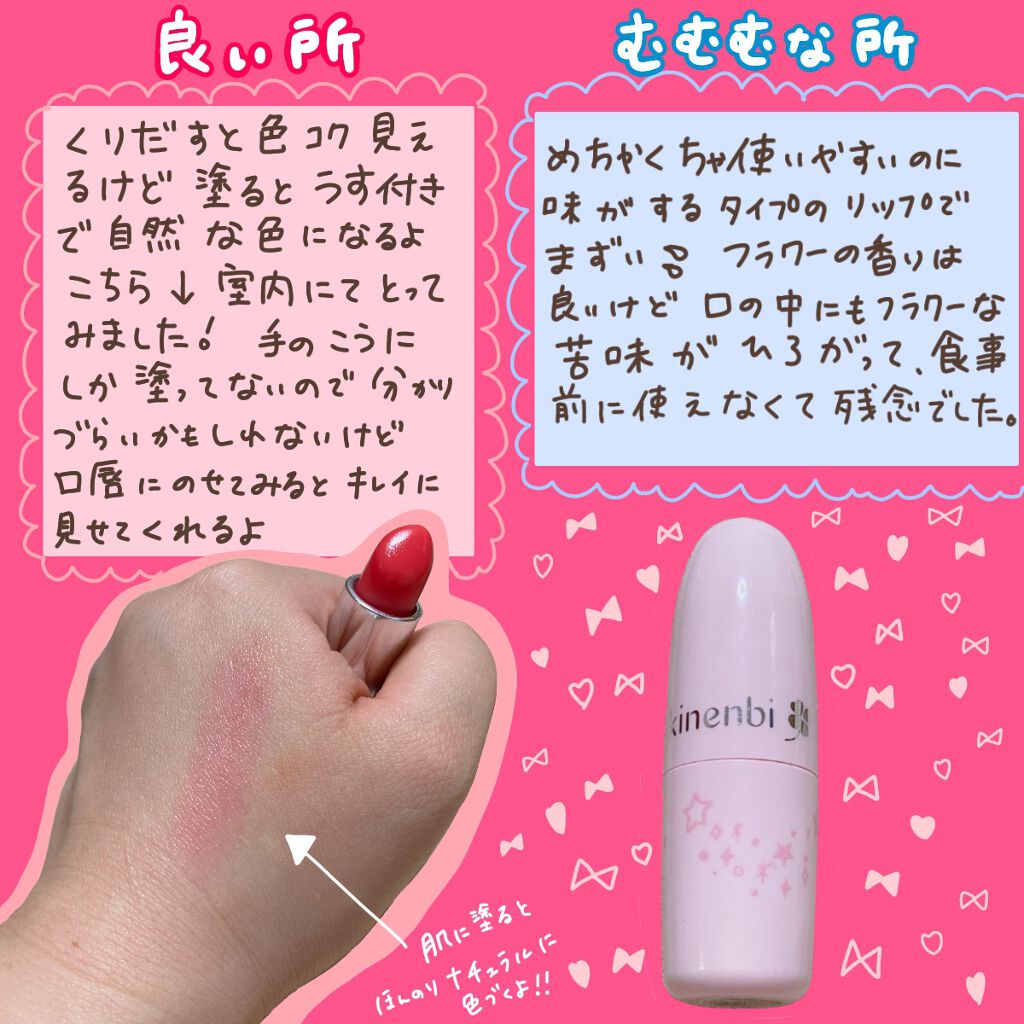 良い所
くりだすと色コク見え
るけど 塗ると うす付き
で自然な色になるよ
こちら↓室内にてとって
みました! 手のこうに
しか塗ってないので分かり
づらいかもしれないけど
口唇にのせてみるとキレイに
見せてくれるよ
むむむな所
めちゃくちゃ使いやすいのに
味がするタイプのリップで
まずい フラワーの香りは
良いけど口の中にもフラワーな
苦味がひろがって、食事
前に使えなくて残念でした。
kinenbi
肌に塗ると
ほんのりナチュラルに
色づくよ!!